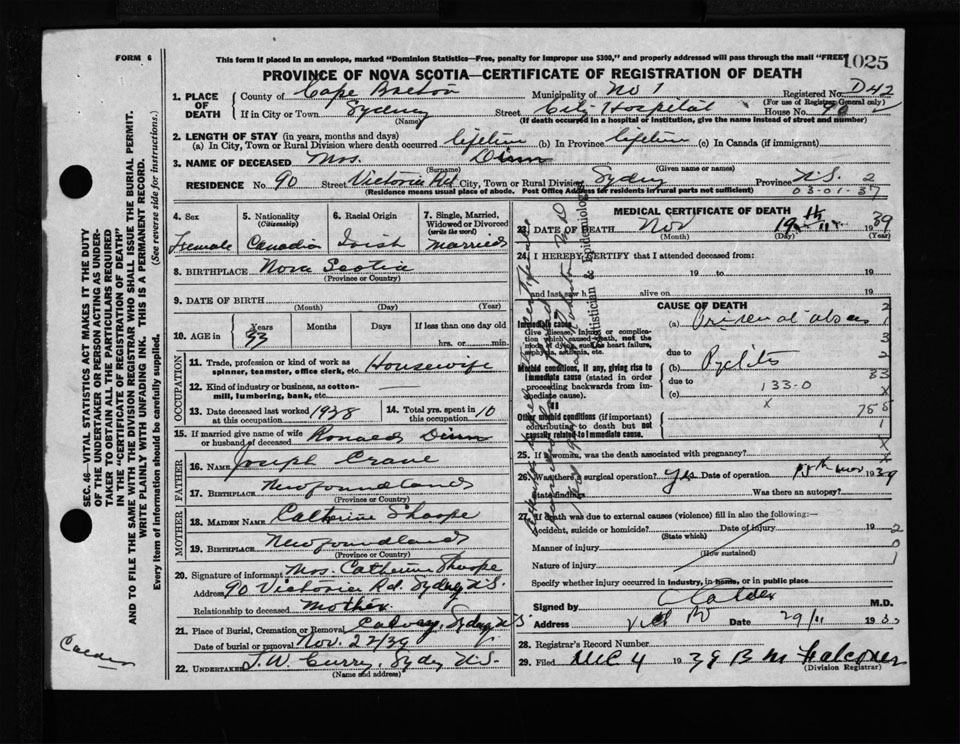 FORM 6
This form if placed in an envelope, marked "Dominion Statistics—Free, penalty for improper use $300," and properly addressed will pass through the mail "FREE"
1025
PROVINCE OF NOVA SCOTIA—CERTIFICATE OF REGISTRATION OF DEATH
1. PLACE OF DEATH
County of Cape Breton Municipality of No 1 Registered No. D42
(For use of Registrar General only)
If in City or Town Sydney Street City Hospital House No. 90
(Name) (If death occurred in a hospital or institution, give the name instead of street and number)
2. LENGTH OF STAY (in years, months and days)
(a) In City, Town or Rural Division where death occurred lifetime (b) In Province lifetime (c) In Canada (if immigrant)
3. NAME OF DECEASED Mrs. Dinn
(Surname) (Given name or names)
RESIDENCE No. 90 Street Victoria Rd City, Town or Rural Division Sydney Province N.S. 2
(Residence means usual place of abode. Post Office Address for residents in rural parts not sufficient) 03-01-37
4. Sex
Female
5. Nationality
(Citizenship)
Canadian
6. Racial Origin
Irish
7. Single, Married, Widowed or Divorced
(write the word)
Married
8. BIRTHPLACE Nova Scotia
(Province or Country)
9. DATE OF BIRTH
(Month) (Day) (Year)
10. AGE in
Years 33 Months Days If less than one day old
hrs. or min.
OCCUPATION
11. Trade, profession or kind of work as
spinner, teamster, office clerk, etc. Housewife
12. Kind of industry or business, as cotton-
mill, lumbering, bank, etc.
13. Date deceased last worked at this occupation 1938
14. Total yrs. spent in this occupation 10
15. If married give name of wife or husband of deceased Ronald Dinn
FATHER
16. NAME Joseph Crane
17. BIRTHPLACE Newfoundland
(Province or Country)
MOTHER
18. MAIDEN NAME Catherine Sharpe
19. BIRTHPLACE Newfoundland
(Province or Country)
20. Signature of informant Mrs. Catherine Sharpe
Address 90 Victoria Rd. Sydney N.S.
Relationship to deceased Mother
21. Place of Burial, Cremation or Removal Calvary, Sydney N S
Date of burial or removal Nov. 22/39
22. UNDERTAKER J. W. Curry, Sydney N.S.
(Name and address)
MEDICAL CERTIFICATE OF DEATH
23. DATE OF DEATH Nov 19th 1939
(Month) (Day) (Year)
24. I HEREBY CERTIFY that I attended deceased from:
19 to 19
and last saw h alive on 19
CAUSE OF DEATH
Immediate cause
Give disease, injury or complica-
tion which caused death, not the
mode of dying, such as heart failure,
asphyxia, asthenia, etc.
(a)
due to
Morbid conditions, if any, giving rise to
immediate cause (stated in order
proceeding backwards from im-
mediate cause).
(b) Pyelitis
due to
(c) 133-0
Other morbid conditions (if important)
contributing to death but not
causally related to immediate cause.
25. If a woman, was the death associated with pregnancy? X
26. Was there a surgical operation? Yes Date of operation Nov 1939
State findings Was there an autopsy?
27. If death was due to external causes (violence) fill in also the following:—
Accident, suicide or homicide? Date of injury 19
(State which)
Manner of injury
(How sustained)
Nature of injury
Specify whether injury occurred in industry, in home, or in public place
Signed by Calder M.D.
Address Date 29/11 193
28. Registrar's Record Number
29. Filed Dec 4 1939 B M Falconer
(Division Registrar)
Statistician & Epidemiologist
SEC. 46—VITAL STATISTICS ACT MAKES IT THE DUTY
OF THE UNDERTAKER OR PERSON ACTING AS UNDER-
TAKER TO OBTAIN ALL THE PARTICULARS REQUIRED
IN THE "CERTIFICATE OF REGISTRATION OF DEATH"
AND TO FILE THE SAME WITH THE DIVISION REGISTRAR WHO SHALL ISSUE THE BURIAL PERMIT.
WRITE PLAINLY WITH UNFADING INK. THIS IS A PERMANENT RECORD.
Every item of information should be carefully supplied. (See reverse side for instructions.)
Calder